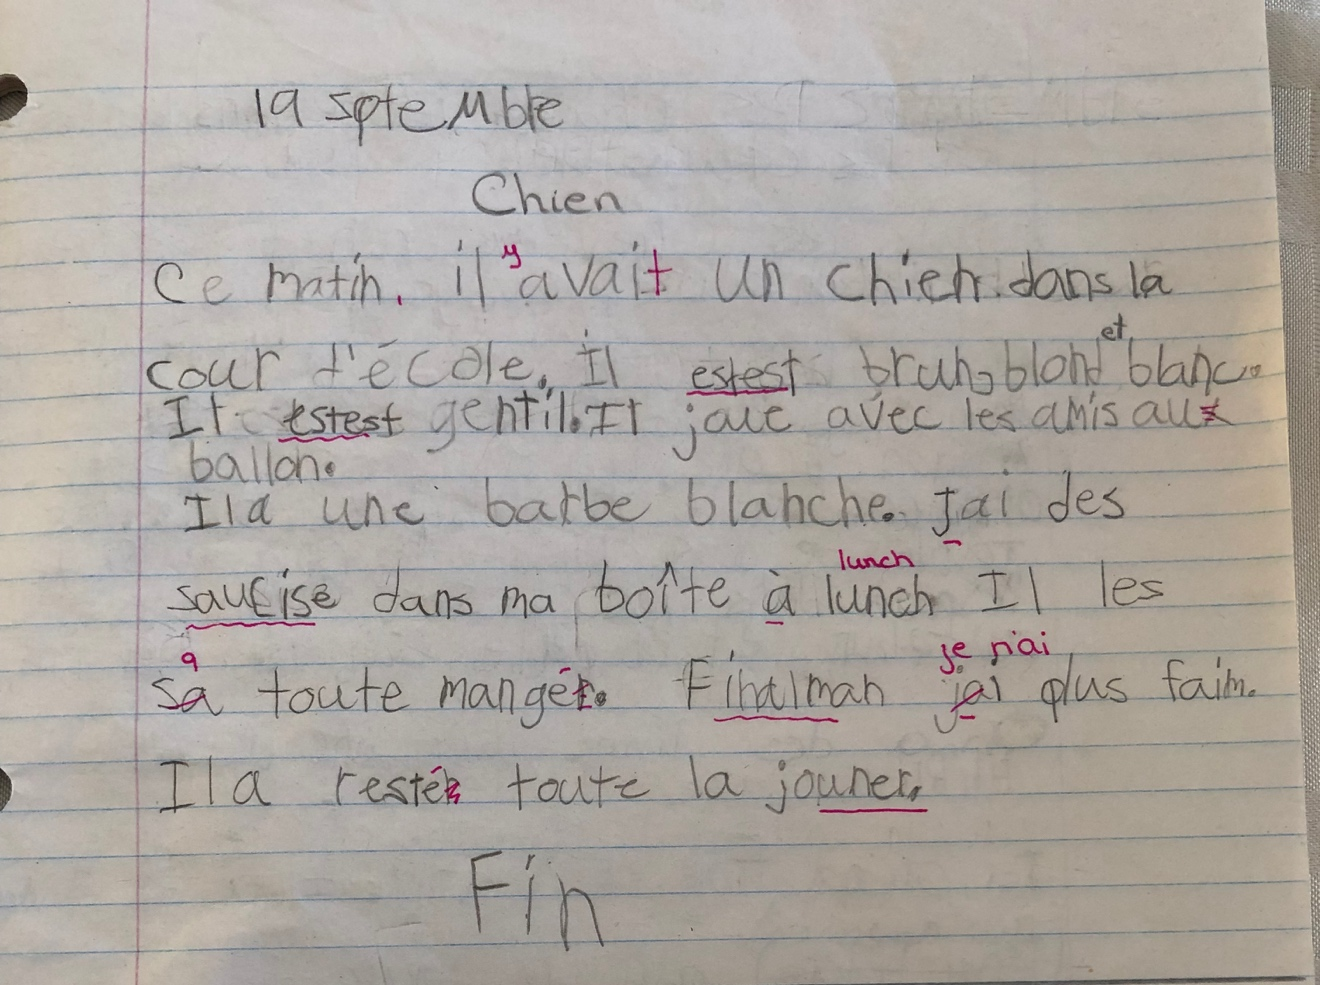 19 sptemble
Chien
Ce matin, il y avait un chien dans la
cour d'école. Il estest brun, blond et blanc.
Il estest gentil. Il joue avec les amis aux
ballon.
Il a une barbe blanche. J'ai des
saucise dans ma boîte à lunch lunch Il les
sa a toute manger. Finalman j'ai je n'ai plus faim.
Il a rester toute la jouner.
Fin